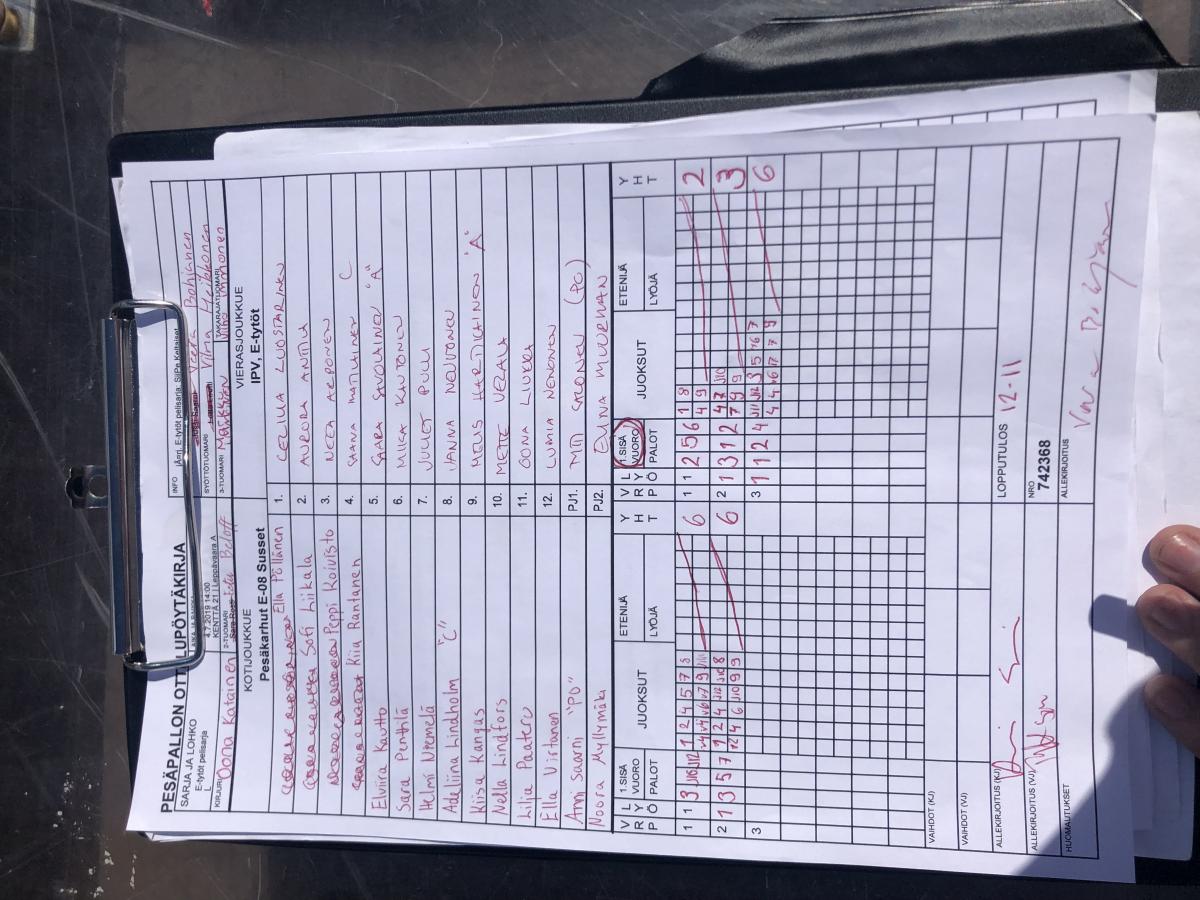 PESÄPALLON OTTELUPÖYTÄKIRJA
SARJA JA LOHKO
E-tytöt pelisarja
L
4.7.2019 14:00
KENTTÄ 21 | Leppävaara A
INFO
Änri, E-tytöt pelisarja: SiiPe Keltaiset
SYÖTTÖTUOMARI
Vilma Heikkonen
KIRJURI
Oona Katainen
2-TUOMARI
Beloff
3-TUOMARI
Markku
TAKARAJATUOMARI
Immonen
KOTIJOUKKUE
Pesäkarhut E-08 Susset
VIERASJOUKKUE
IPV, E-tytöt
Ella Pöllänen
1.
CECILIA LUOSTARINEN
Sofi Liikala
2.
AURORA ANTTILA
Peppi Koivisto
3.
NEEA AEPONEN
Kiia Rantanen
4.
SAANA MATILAINEN C
Elviira Kautto
5.
SARA SAVOLAINEN "A"
Sara Penttilä
6.
MIIKA KAUTONEN
Helmi Niemelä
7.
JULIET PULLI
Adeliina Lindholm "C"
8.
JANNA NEUVONEN
Kiisa Kangas
9.
MELIS HARTIKAINEN "A"
Nella Lindfors
10.
METTE VEZALA
Lilia Paateru
11.
OONA LIUKKA
Ella Viitanen
12.
LUMIA NENONEN
Anni Saarni "PD"
PJ1.
MITI SALONEN (PO)
Noora Myllymäki
PJ2.
ELINA MUURMAN
V R P
L Y Ö
1.SISÄ
VUORO
PALOT
JUOKSUT
ETENIJÄ
LYÖJÄ
Y H T
V R P
L Y Ö
1.SISÄ
VUORO
PALOT
JUOKSUT
ETENIJÄ
LYÖJÄ
Y H T
1 1 3 J10 J12 1 2 4 5 7 8 6
1 1 2 5 6 1 8 2
4 9
2 1 3 5 7 1 2 4 J12 J10 8 6
2 4 6 J10 9 9
2 1 3 1 2 4 7 J10 3
7 9 9
3
3 1 1 2 4 J11 J12 3 5 6 7 6
4 4 6 7 7 9
VAIHDOT (KJ)
VAIHDOT (VJ)
ALLEKIRJOITUS (KJ)
LOPPUTULOS 12-11
ALLEKIRJOITUS (VJ)
NRO
742368
HUOMAUTUKSET
ALLEKIRJOITUS